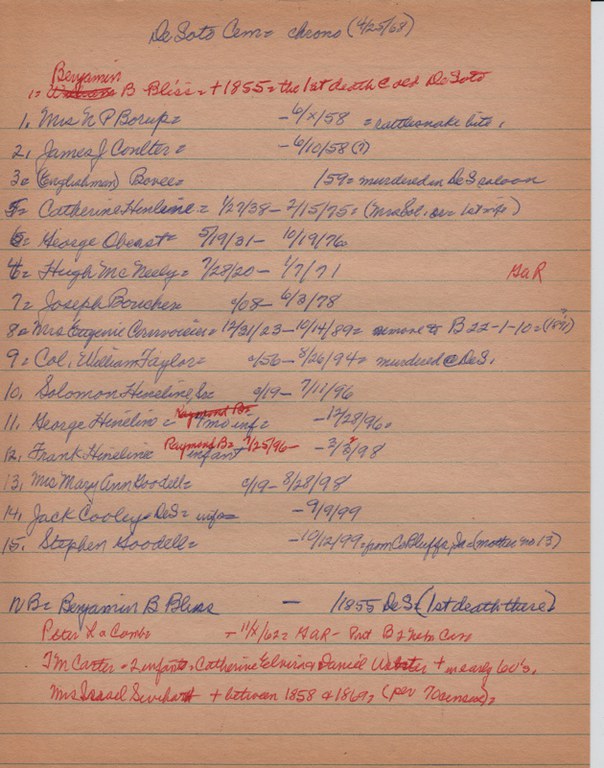 De Soto Cem = chrono (4/25/68)
Benjamin
1 = B Bliss = + 1855 = the 1st death @ old De Soto
1, Mrs N P Borup = - 6/x/58 = rattlesnake bite,
2, James J Coulter = - 6/10/58 (?)
3 = (Englishman) Bovee = /59 = murdered in De S saloon
5 = Catherine Hineline = 1/27/38 - 2/15/75 = (Mrs Sol, 1st wife)
6 = George Obeast = 5/19/31 - 10/19/76
4 = Hugh McNeely = 7/28/20 - 1/7/71 GaR
7 = Joseph Boucher c/08 - 6/3/78
8 = Mrs Eugenie = 12/31/23 - 10/14/89 = remove to B 22-1-10 = (1891)
9 = Col, William Taylor = c/56 - 8/26/94 = murdered @ De S.
10, Solomon Hineline, Sr c/19 - 7/11/96
11, George Hineline = Raymond B = 7 mo inf = - 12/28/96.
12, Frank Hineline Raymond B = 7/25/96 - infant - 3/8/98
13, Mrs Mary Ann Goodell = c/19 - 8/28/98
14, Jack Cooley = De S = wife = - 9/9/99
15, Stephen Goodell = - 10/12/99 = from C. Bluffs, Ia = (mother no 13)
NB = Benjamin B Bliss - /1855 De S = (1st death there)
Peter LaCombe - 11/x/62 = GaR - Prob B 2 Neb Cav
J M Carter = 2 infants = Catherine Elvira & Daniel Webster + in early 60's,
Mrs Israel Swihart + between 1858 & 1869, (per 70 census) =